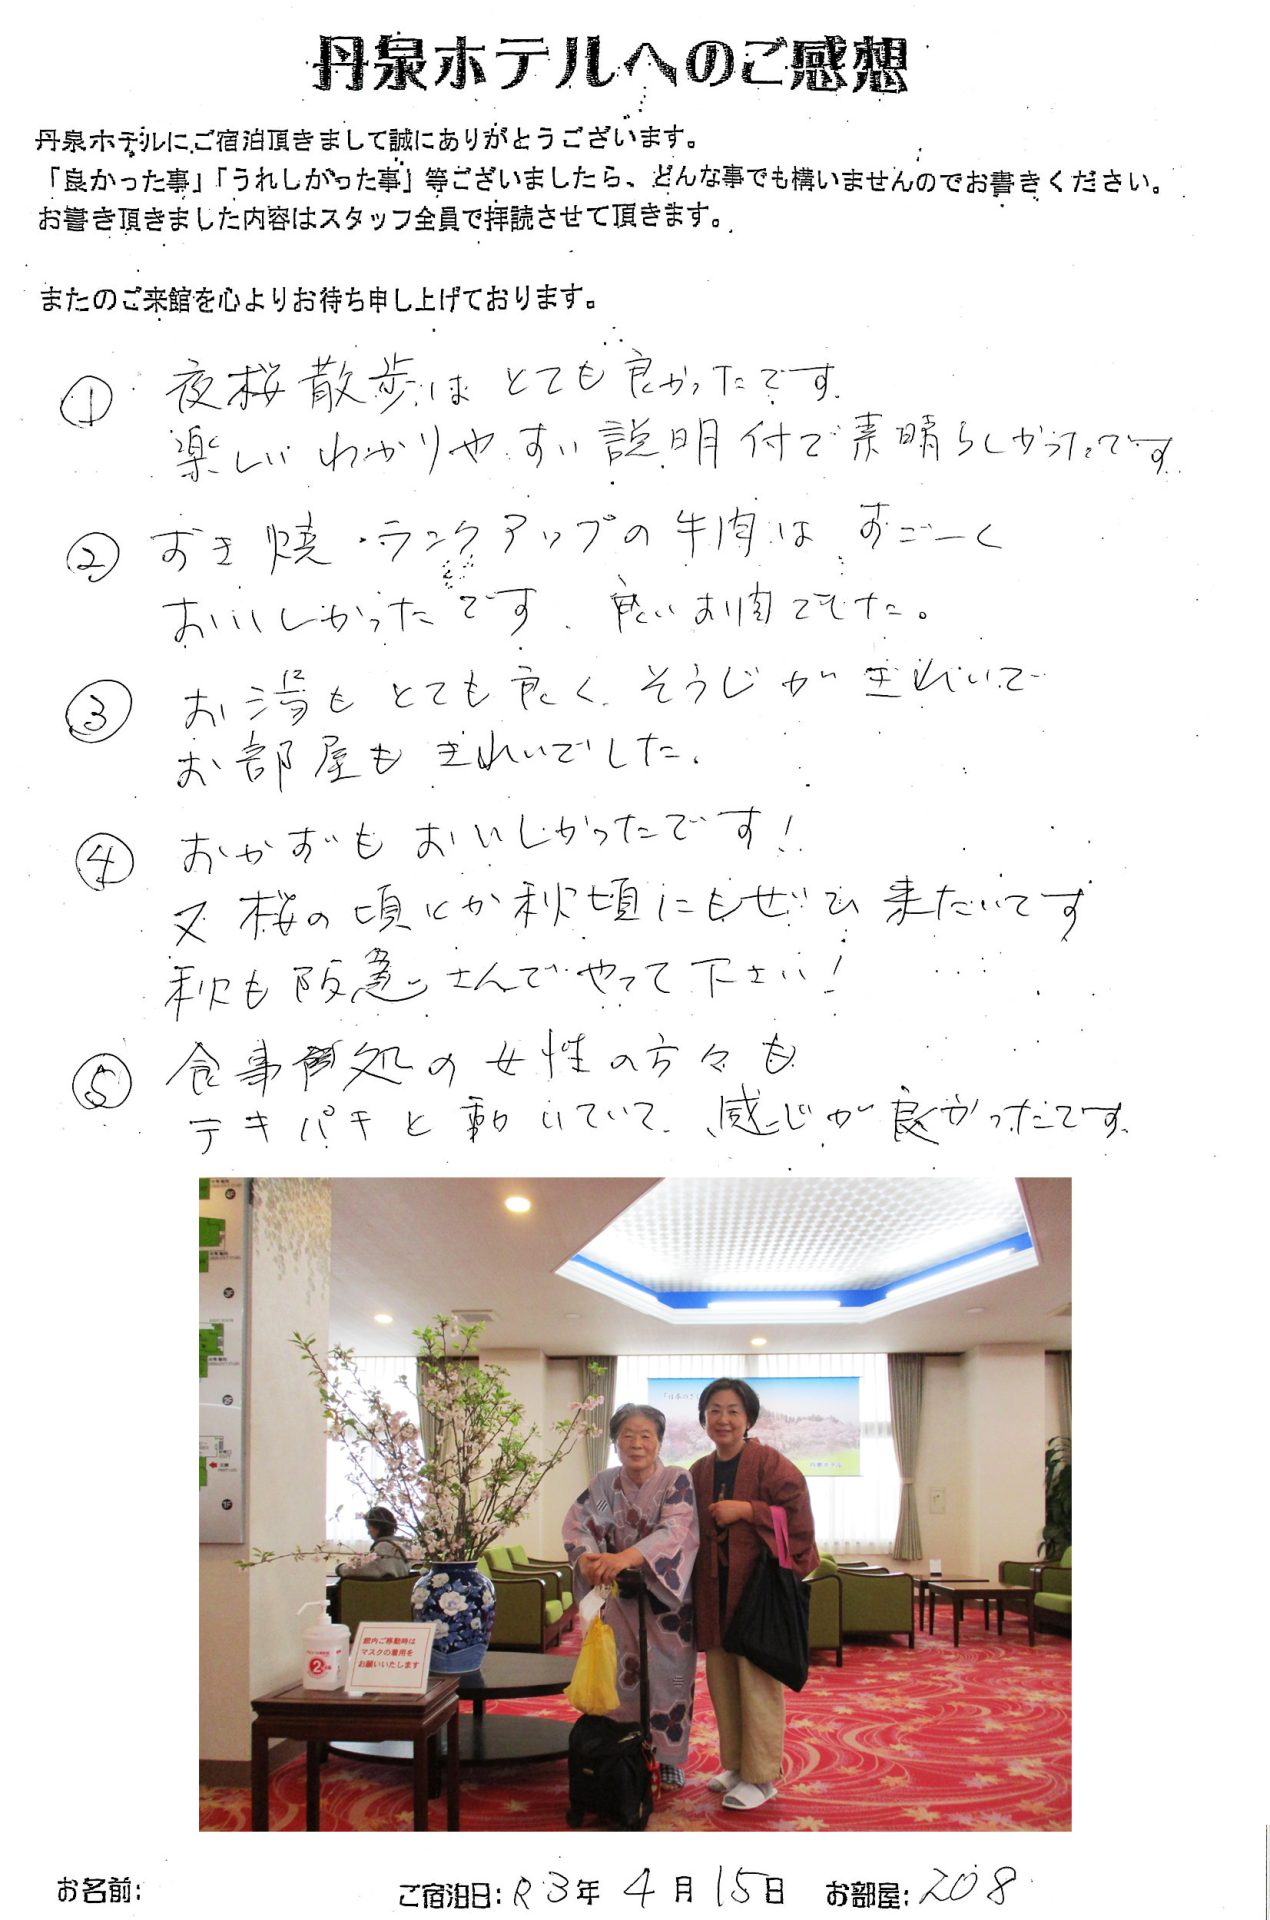 丹泉ホテルへのご感想
丹泉ホテルにご宿泊頂きまして誠にありがとうございます。
「良かった事」「うれしかった事」等ございましたら、どんな事でも構いませんのでお書きください。
お書き頂きました内容はスタッフ全員で拝読させて頂きます。
またのご来館を心よりお待ち申し上げております。
① 夜桜散歩はとても良かったです。
楽しいわかりやすい説明付で素晴らしかったです
② すき焼・ランクアップの牛肉はすごーく
おいしかったです。良いお肉でした。
③ お湯もとても良く、そうじがきれいで
お部屋もきれいでした。
④ おかずもおいしかったです!
又桜の頃にか秋頃にもぜひ来たいです
秋も阪急さんでやって下さい!
⑤ 食事処の女性の方々も
テキパキと動いていて、感じが良かったです。
「日本のさく
丹泉ホテル
館内ご移動時は
マスクの着用を
お願いいたします
お名前:
ご宿泊日: R3年 4月15日 お部屋: 208